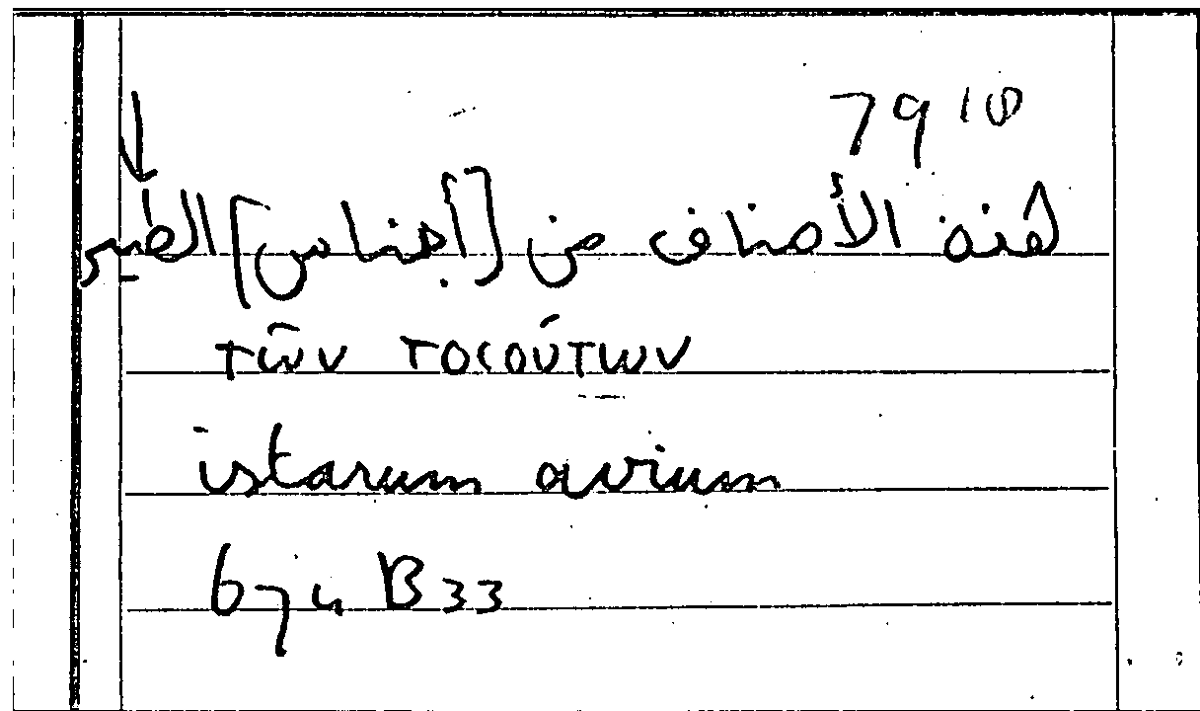 79 10
لهذه الأصناف من [أجناس] الطير
τῶν τοσούτων
istarum avium
674 B 33